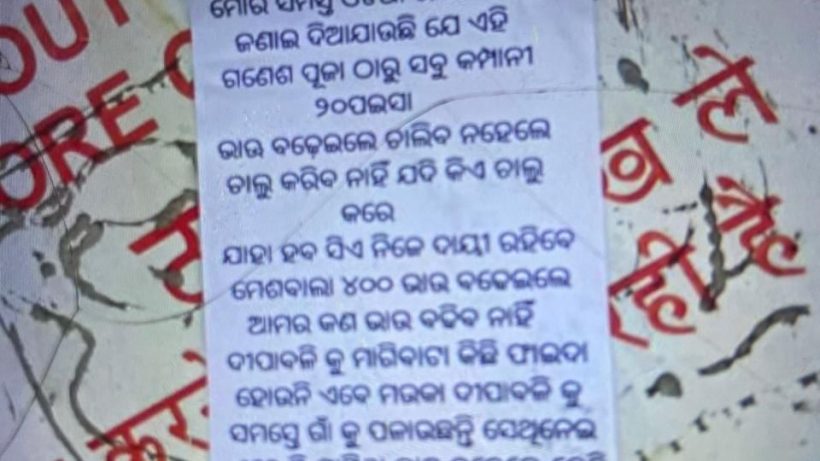 ମୋର ସମସ୍ତ
ଜଣାଇ ଦିଆଯାଉଛି ଯେ ଏହି
ଗଣେଶ ପୂଜା ଠାରୁ ସବୁ କମ୍ପାନୀ
୨୦ପଇସା
ଭାଉ ବଢ଼େଇଲେ ଚାଲିବ ନହେଲେ
ଚାଲୁ କରିବ ନାହିଁ ଯଦି କିଏ ଚାଲୁ
କରେ
ଯାହା ହବ ସିଏ ନିଜେ ଦାୟୀ ରହିବେ
ମେଶବାଲା ୪୦୦ ଭାଉ ବଢେଇଲେ
ଆମର କଣ ଭାଉ ବଢିବ ନାହିଁ
ଦୀପାବଳି କୁ ମାଗିବାଟା କିଛି ଫାଇଦା
ହୋଉନି ଏବେ ମଉକା ଦୀପାବଳି କୁ
ସମସ୍ତେ ଗାଁ କୁ ପଳାଉଛନ୍ତି ସେଥିନେଇ
OUT
ORE
ले
है